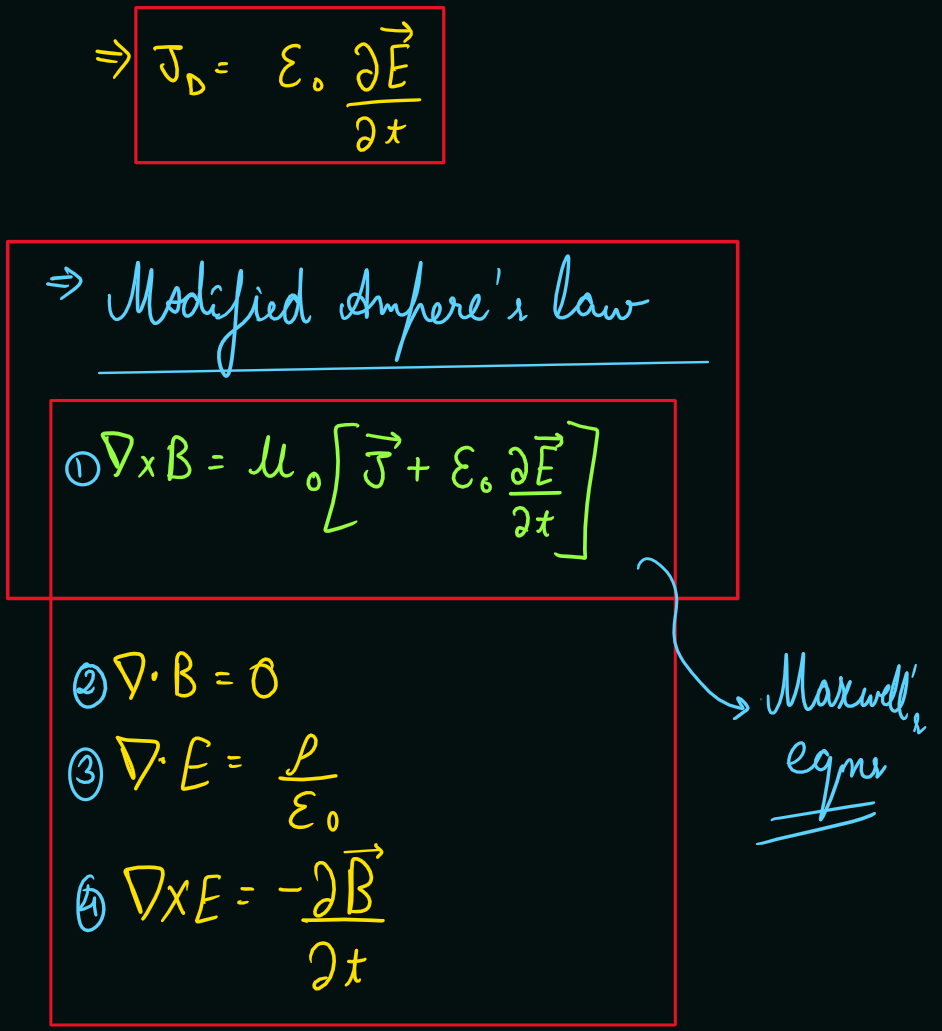 ⇒ J_D = ε₀ ∂E⃗/∂t
⇒ Modified Ampere's law
① ∇×B = μ₀[J⃗ + ε₀ ∂E⃗/∂t]
② ∇·B = 0
③ ∇·E = ρ/ε₀
④ ∇×E = -∂B⃗/∂t
Maxwell's
eqns